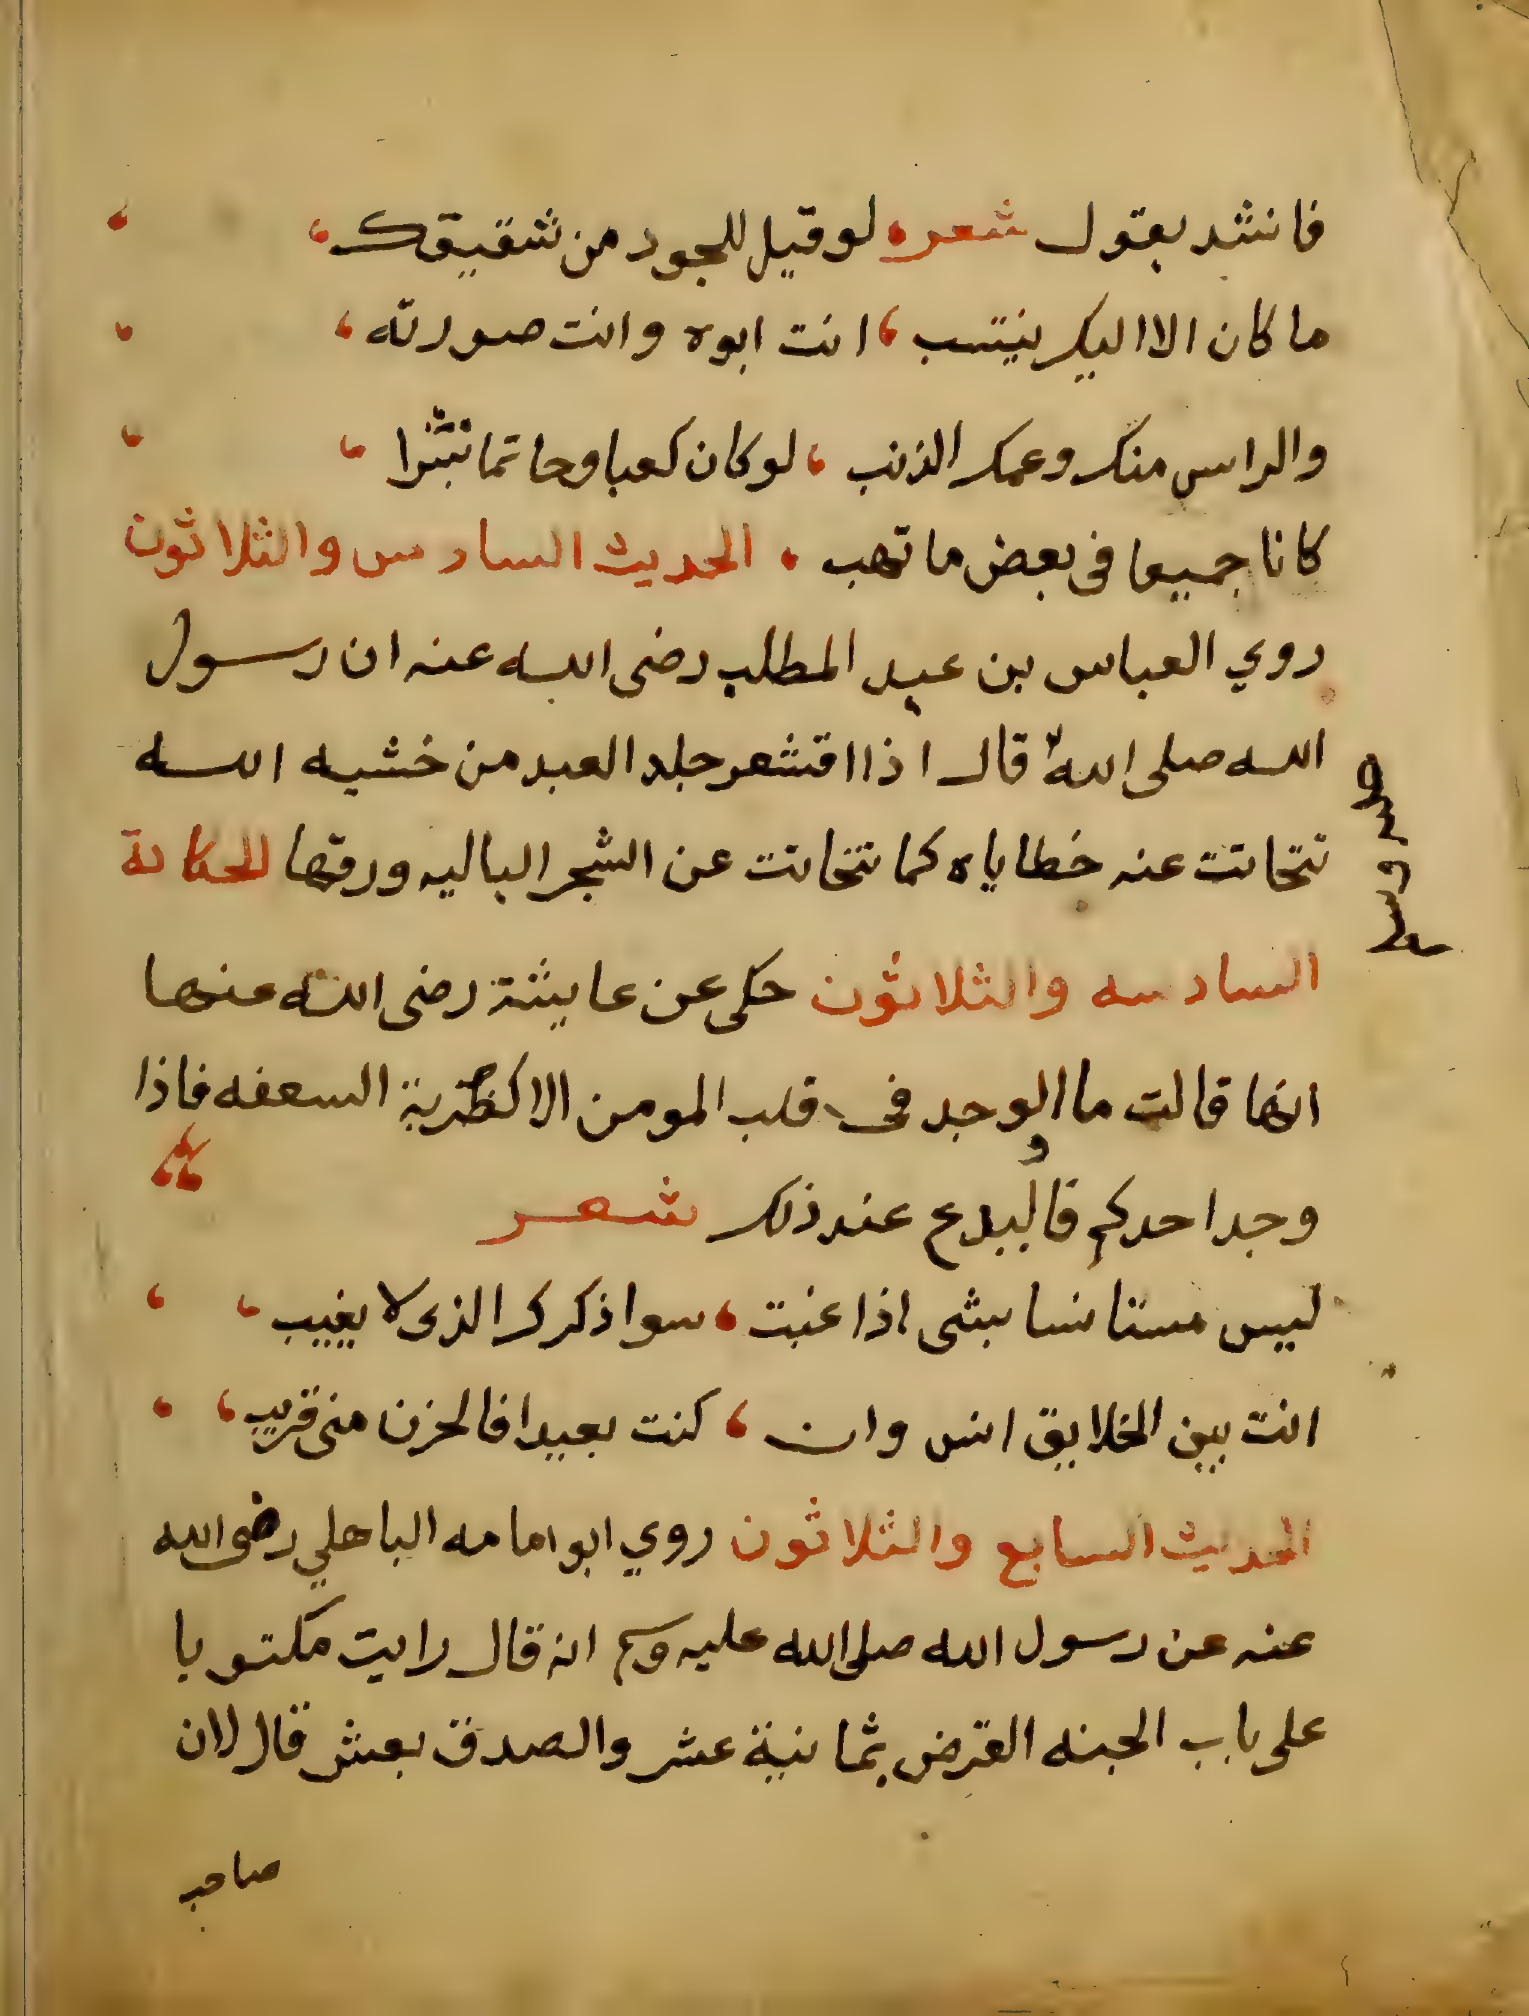 فانشد يقول شعره لو قيل للجود من شقيقك
ما كان الا اليك ينتسب، انت ابوه وانت صورته،
والراس منك وعمك الذنب، لو كان كعبا وحاتما نشرا
كانا جميعا فى بعض ما تهب . الحديث السادس والثلاثون
روي العباس بن عبد المطلب رضى الله عنه ان رسول
الله صلى الله قال اذا اقشعر جلد العبد من خشيه الله
عليه وسلم
تتحاتت عنه خطاياه كما تتحاتت عن الشجر الباليه ورقها الحكاية
السادسه والثلاثون حكى عن عايشة رضى الله عنها
انها قالت ما الوجد فى قلب المومن الا كضربة السعفه فاذا
وجد احدكم فاليدع عند ذلك شعر
ليس مستانسا بشى اذا غبت، سوا ذكرك الذى لا يغيب
انت بين الخلايق انس وان، كنت بعيدا فالحزن منى قريب،
الحديث السابع والثلاثون روي ابو امامه الباهلي رضى الله
عنه عن رسول الله صلى الله عليه وسلم انه قال رايت مكتوبا
على باب الجنه القرض بثمانية عشر والصدقة بعشر قال لان
صاحب